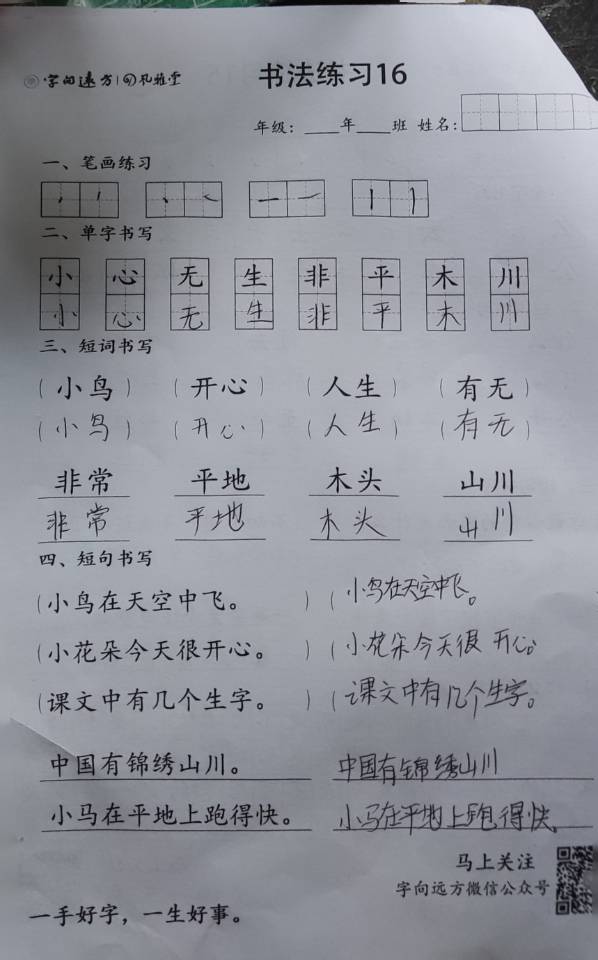 字向远方 孔雅堂
书法练习16
年级：____年____班 姓名：
一、笔画练习
二、单字书写
小 心 无 生 非 平 木 川
小 心 无 生 非 平 木 川
三、短词书写
（小鸟）（开心）（人生）（有无）
（小鸟）（开心）（人生）（有无）
非常 平地 木头 山川
非常 平地 木头 山川
四、短句书写
（小鸟在天空中飞。）（小鸟在天空中飞。
（小花朵今天很开心。）（小花朵今天很开心。
（课文中有几个生字。）（课文中有几个生字。
中国有锦绣山川。 中国有锦绣山川
小马在平地上跑得快。 小马在平地上跑得快。
马上关注
字向远方微信公众号
一手好字，一生好事。